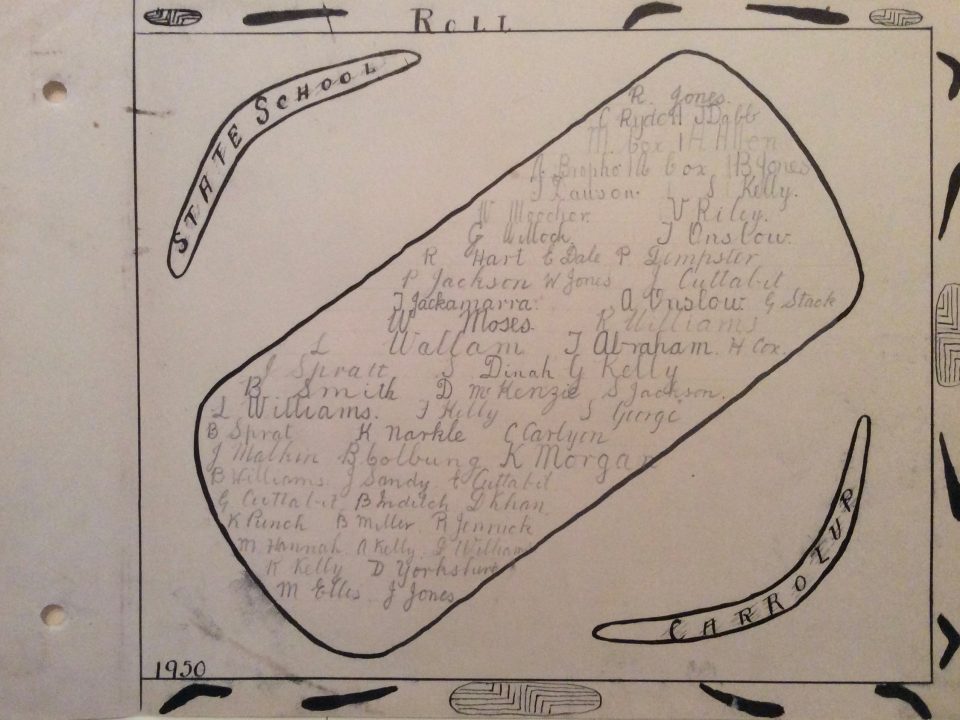 ROLL
STATE SCHOOL
R. Jones.
C Ryder J Dabb
M. Cox H Allen
A Bropho A Cox B Jones
J Lawson. S Kelly.
W Meecher. V Riley.
G Willoch. J Onslow.
R Hart E Dale P Dempster
P Jackson W Jones J Cuttabut
J Jackamarra. A Onslow. G Stack
W Moses. K Williams
L Wallam J Abraham. H Cox.
J Spratt S Dinah G Kelly
B Smith D McKenzie S Jackson.
L Williams. J Kelly S George
B Sprat K Narkle C Carlyon
J Mathin B Colbung K Morgan
B Williams. J Sandy E Cuttabut
G Cuttabut B Inditch D Khan.
K Punch B Miller R Jennick
M. Hannah. A Kelly. D Williams
K Kelly D Yorkshire
M Ellis. J Jones
CARROLUP
1950